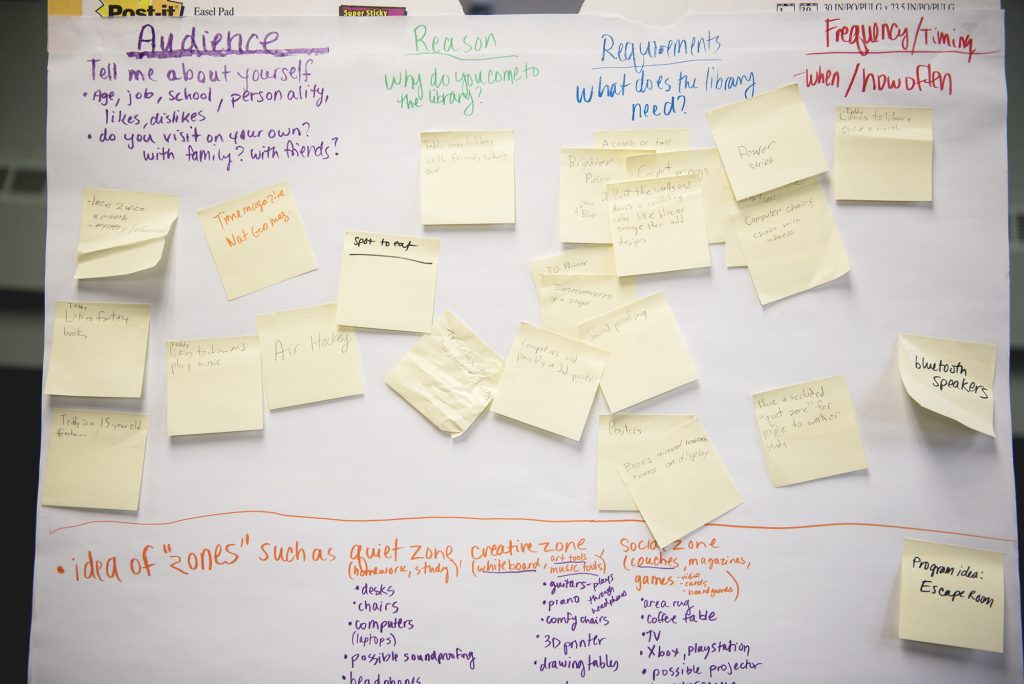 Post-it Easel Pad
Super Sticky
30 IN/PO/PULG x 23.5 IN/PO/PULG
Audience
Tell me about yourself
• Age, job, school, personality,
likes, dislikes
• do you visit on your own?
with family? with friends?
Reason
why do you come to
the library?
Requirements
what does the library
need?
Frequency/Timing
-when/how often
a month
Time magazine
Nat Geo mag.
Spot to eat
with friends to hang
out
A couch or two.
Brighter
Paint
Carpet or rugs
Paint the walls and
doors a
color like blue or
orange then add
designs
Power
strips
Computer chairs,
chairs with
wheels
Teddy
Comes to library
once a month
3D Printer
Instruments
or a stage
Sound proofing
Computers and
possibly a 3d printer
Teddy
Likes fantasy
books
Teddy
likes to draw and
play music
Air Hockey
Teddy is a 15 year old
Posters
Books aimed towards
teens on display
Have a secluded
"quiet zone" for
people to work or
study
bluetooth
speakers
• idea of "zones" such as quiet zone
(homework, study),
• desks
• chairs
• computers
(laptops)
• possible soundproofing
• headphones
creative zone
(whiteboard, art tools
music tools)
• guitars - plays
• piano through
headphones
• comfy chairs
• 3D printer
• drawing tables
Social zone
(couches, magazines,
games - video
- cards
- board games)
• area rug
• coffee table
• TV
• Xbox, playstation
• possible projector
Program idea:
Escape Room